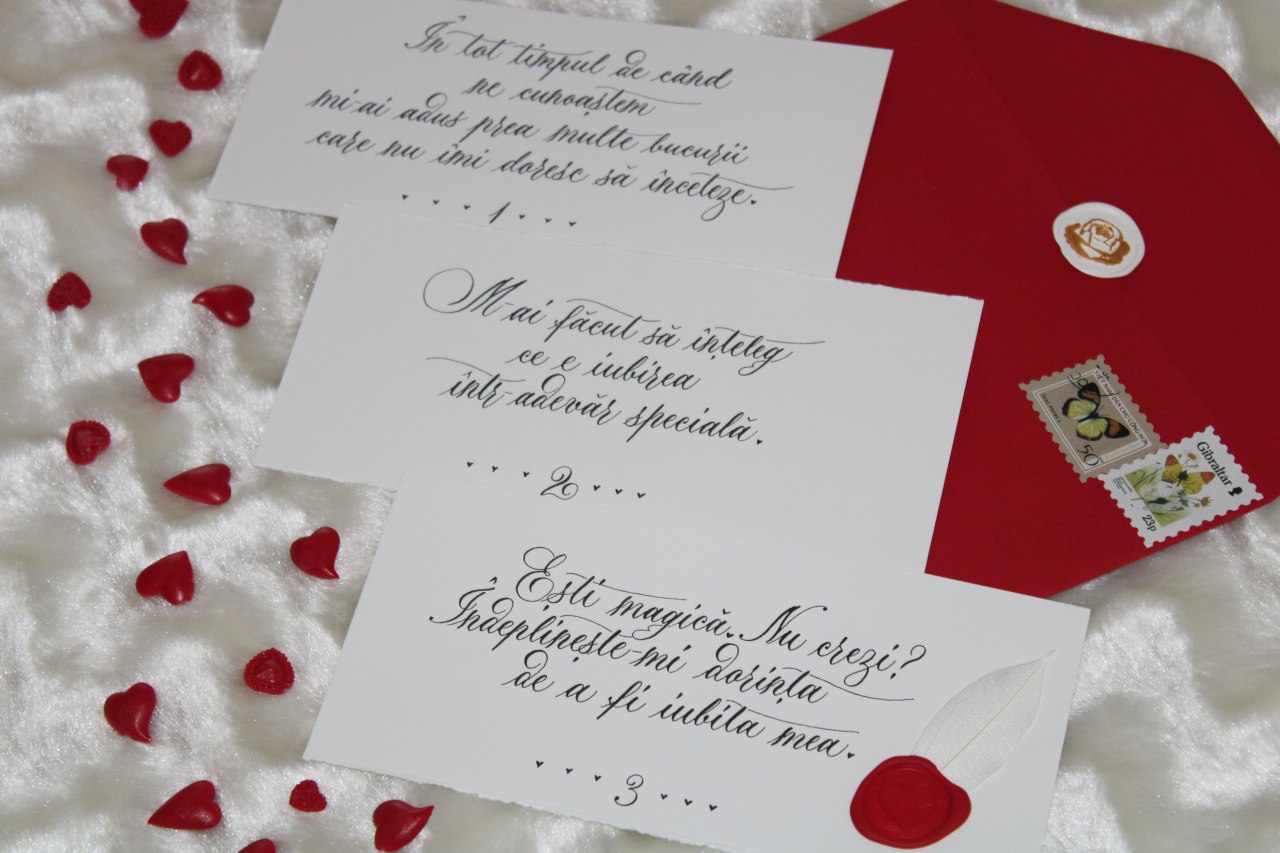 În tot timpul de când
ne cunoaștem
mi-ai adus prea multe bucurii
care nu îmi doresc să înceteze.
1
M-ai făcut să înțeleg
ce e iubirea
într-adevăr specială.
2
Ești magică. Nu crezi?
Îndeplinește-mi dorința
de a fi iubita mea.
3
VIET NAM DAN CHU CONG HOA
50
Gibraltar
23p